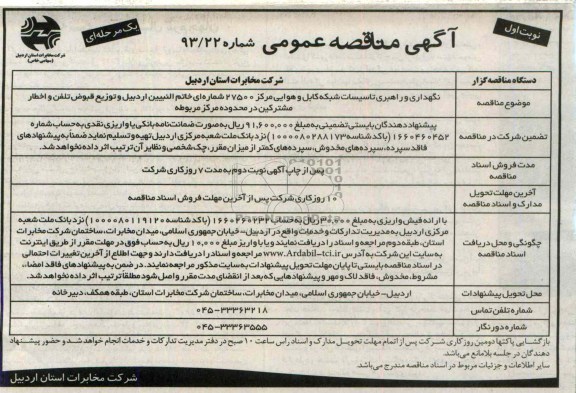 نوبت اول
آگهی مناقصه عمومی شماره ۹۳/۲۲
یک مرحله‌ای
شرکت مخابرات استان اردبیل
(سهامی خاص)
دستگاه مناقصه گزار
شرکت مخابرات استان اردبیل
موضوع مناقصه
نگهداری و راهبری تاسیسات شبکه کابل و هوایی مرکز ۲۷۵۰۰ شماره‌ای خاتم النبیین اردبیل و توزیع قبوض تلفن و اخطار
مشترکین در محدوده مرکز مربوطه
تضمین شرکت در مناقصه
پیشنهاد دهندگان بایستی تضمینی به مبلغ ۹۱,۶۰۰,۰۰۰ ریال به صورت ضمانت نامه بانکی یا واریز نقدی به حساب شماره
۱۶۶۰۴۶۰۴۵۲ (باکد شناسه ۱۰۰۰۰۸۰۲۸۸۱۷۳) نزد بانک ملت شعبه مرکزی اردبیل تهیه و تسلیم نماید ضمناً به پیشنهادهای
فاقد سپرده، سپرده‌های مخدوش، سپرده‌های کمتر از میزان مقرر، چک شخصی و نظایر آن ترتیب اثر داده نخواهد شد.
مدت فروش اسناد
مناقصه
پس از چاپ آگهی نوبت دوم به مدت ۷ روز کاری شرکت
آخرین مهلت تحویل
مدارک و اسناد مناقصه
۱۰ روز کاری شرکت پس از آخرین مهلت فروش اسناد مناقصه
چگونگی و محل دریافت
اسناد مناقصه
با ارائه فیش واریزی به مبلغ ۳۰۰,۰۰۰ ریال به حساب ۱۶۶۰۲۶۰۲۳۲ (باکد شناسه ۱۰۰۰۰۸۰۱۱۹۱۲۰) نزد بانک ملت شعبه
مرکزی اردبیل به مدیریت تدارکات و خدمات واقع در اردبیل-، خیابان جمهوری اسلامی، میدان مخابرات، ساختمان شرکت مخابرات
استان، طبقه دوم مراجعه و اسناد را دریافت نمایند و یا با واریز مبلغ ۱۰,۰۰۰ ریال به حساب فوق در مهلت مقرر از طریق اینترنت
به سایت این شرکت به آدرس www.Ardabil-tci.ir مراجعه و اسناد را دریافت دارند و جهت اطلاع از آخرین تغییرات احتمالی
در اسناد مناقصه بایستی تا پایان مهلت تحویل پیشنهادات به سایت مذکور مراجعه نمایند. در ضمن به پیشنهادهای فاقد امضاء،
مشروط، مخدوش، فاقد لاک و مهر و پیشنهادهایی که بعد از انقضای مدت مقرر واصل شود مطلقا ترتیب اثر داده نخواهد شد.
محل تحویل پیشنهادات
اردبیل- خیابان جمهوری اسلامی، میدان مخابرات، ساختمان شرکت مخابرات استان، طبقه همکف، دبیرخانه
شماره تلفن تماس
۰۴۵-۳۳۳۶۳۲۱۸
شماره دورنگار
۰۴۵-۳۳۳۶۳۵۵۵
بازگشایی پاکتها دومین روز کاری شرکت پس از اتمام مهلت تحویل مدارک و اسناد راس ساعت ۱۰ صبح در دفتر مدیریت تدارکات و خدمات انجام خواهد شد و حضور پیشنهاد
دهندگان در جلسه بلامانع می‌باشد.
سایر اطلاعات و جزئیات مربوط در اسناد مناقصه مندرج می‌باشد.
شرکت مخابرات استان اردبیل